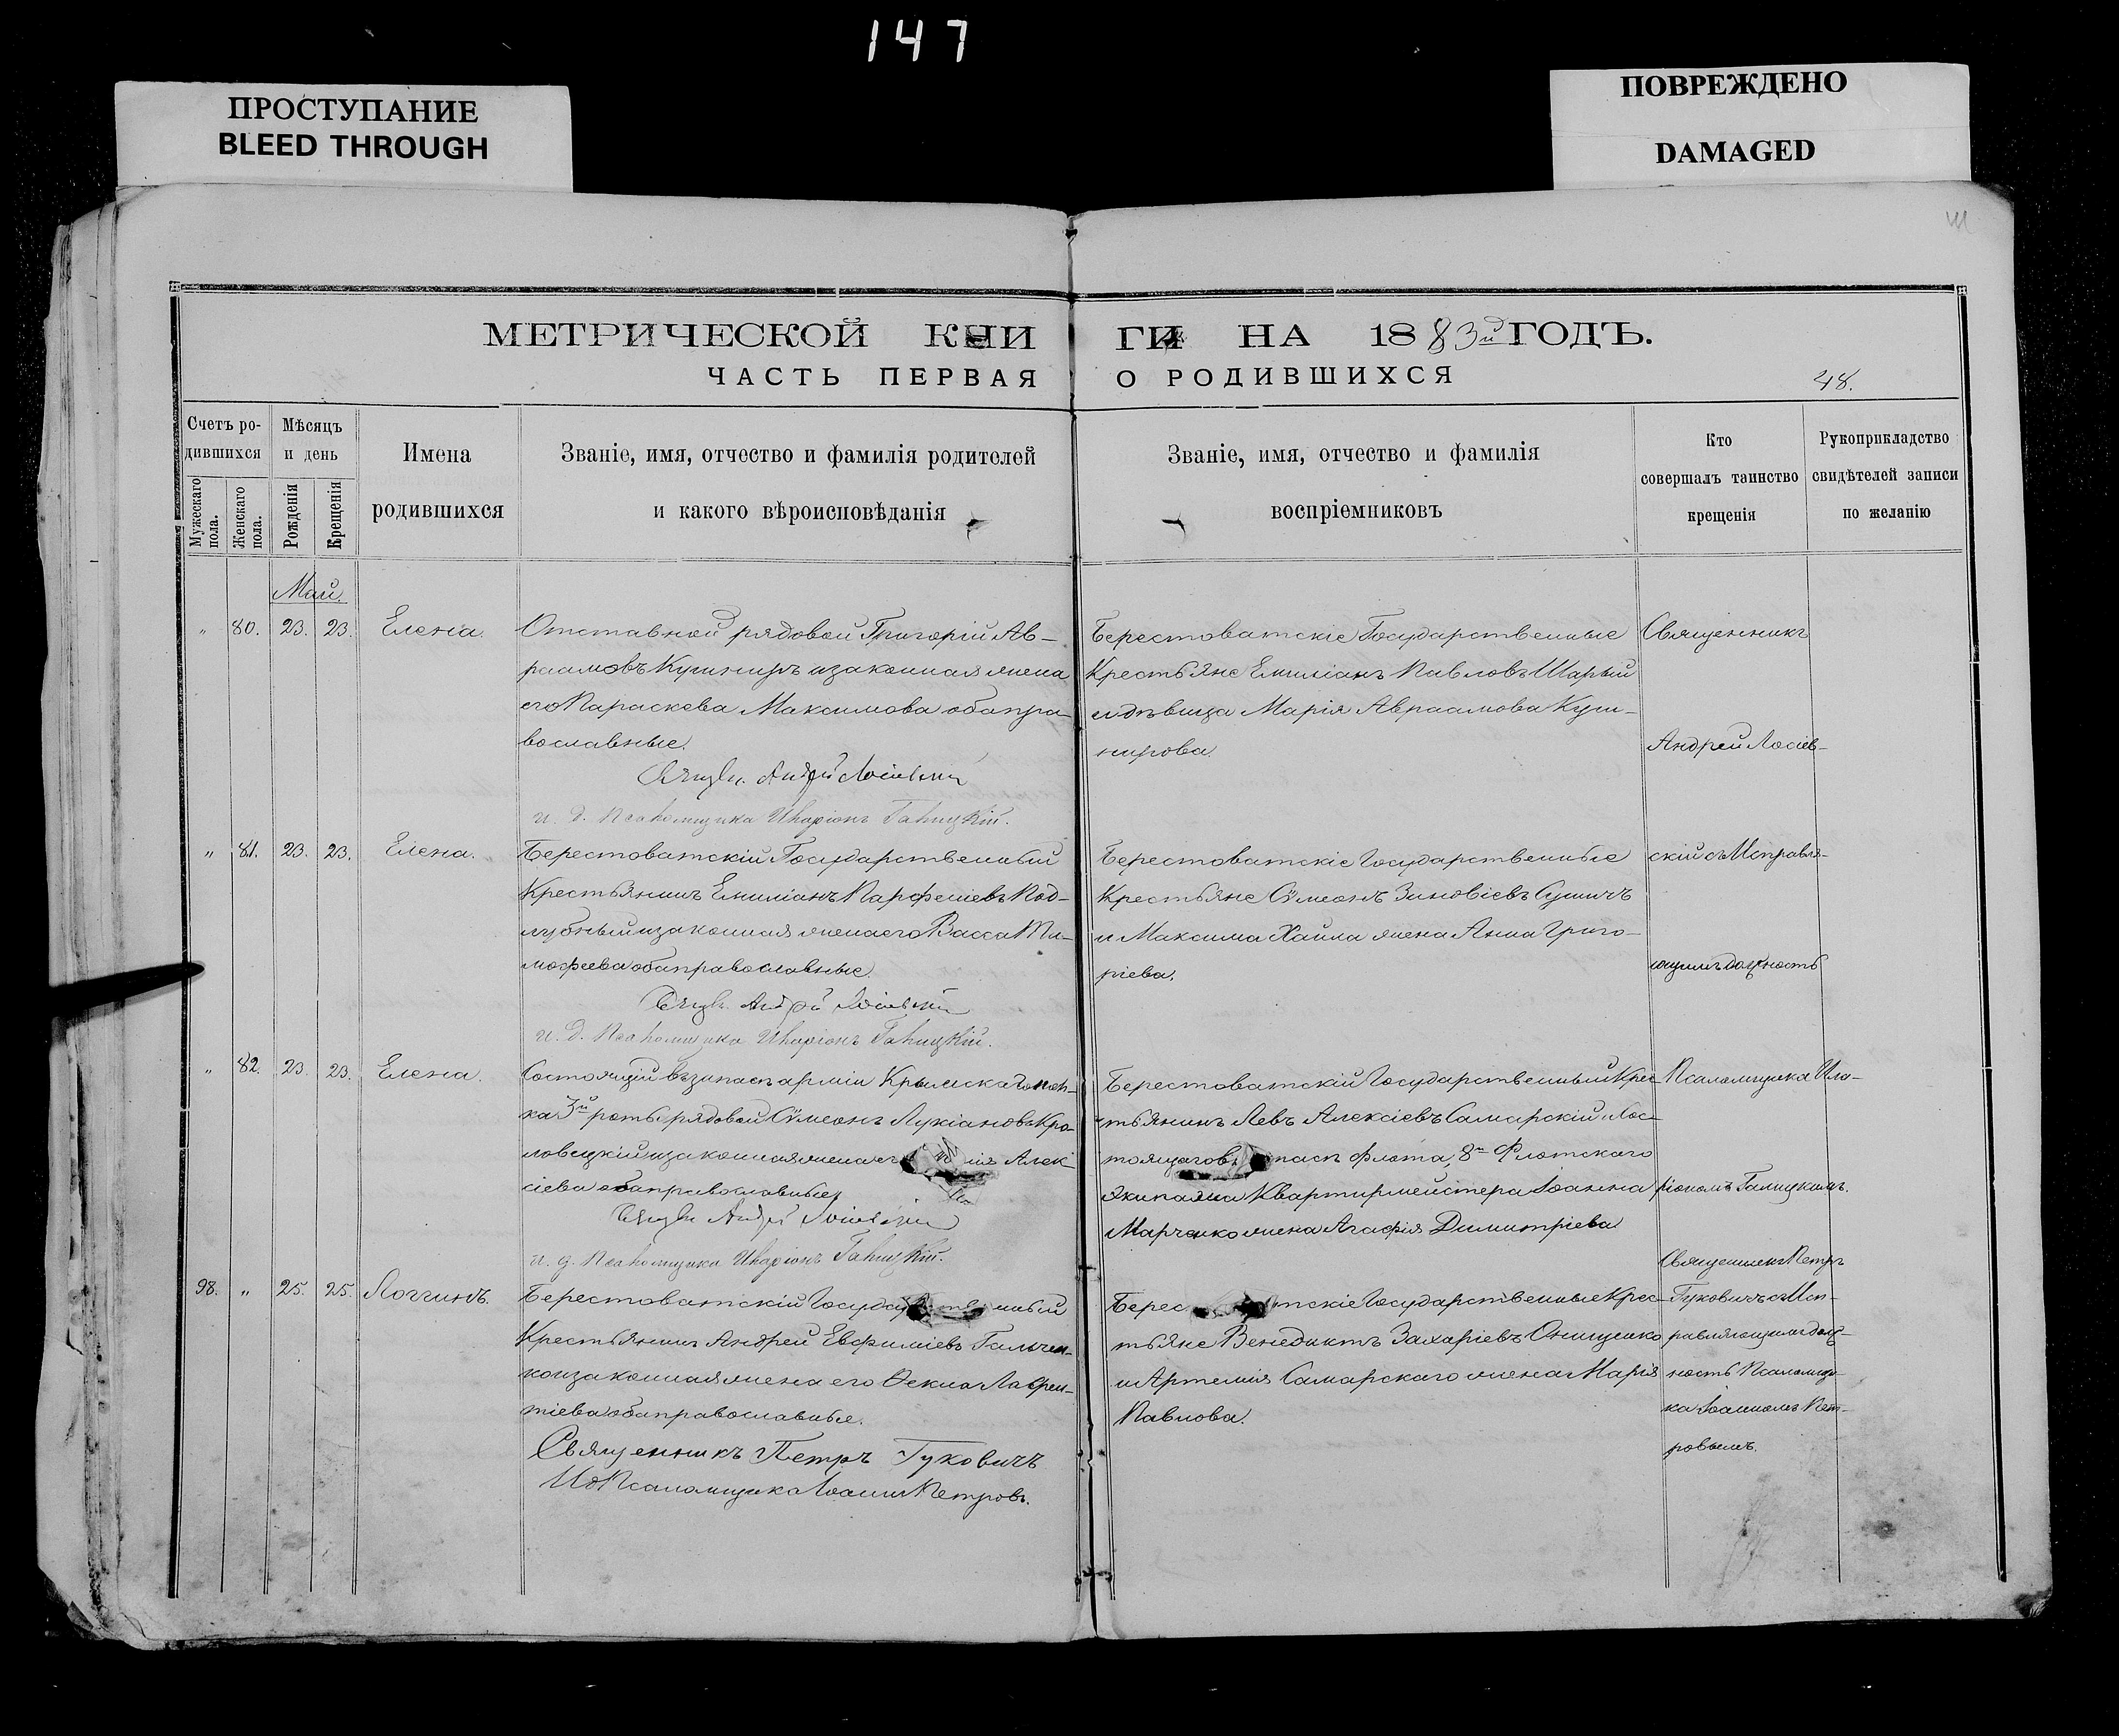 147
ПРОСТУПАНИЕ
BLEED THROUGH
ПОВРЕЖДЕНО
DAMAGED
МЕТРИЧЕСКОЙ КНИГИ НА 1883й ГОДЪ.
ЧАСТЬ ПЕРВАЯ О РОДИВШИХСЯ
48.
Счетъ ро-
дившихся
Мужескаго пола.
Женскаго пола.
Мѣсяцъ
и день
Рожденія
Крещенія
Имена
родившихся
Званіе, имя, отчество и фамилія родителей
и какого вѣроисповѣданія
Званіе, имя, отчество и фамилія
воспріемниковъ
Кто
совершалъ таинство
крещенія
Рукоприкладство
свидѣтелей записи
по желанію
Май.
„ 80. 23. 23. Елена.
Отставной рядовой Григорій Ав-
раамовъ Кушниръ и законная жена
его Параскева Максимова оба пра-
вославные.
Андрей
и. д. Псаломщика Иларіонъ Галицкій.
Берестоватскіе Государственные
Крестьяне Емиліанъ Павловъ Шарый
и дѣвица Марія Авраамова Куш-
нирова.
Священникъ
Андрей Лосіев-
„ 81. 23. 23. Елена.
Берестоватскій Государственный
Крестьянинъ Емиліанъ Парфеніевъ Под-
лубный и законная жена его Васса Ти-
мофеева оба православные.
Андрей
и. д. Псаломщика Иларіонъ Галицкій.
Берестоватскіе Государственные
Крестьяне Сѵмеонъ Зиновіевъ
и Максима Хайла жена Анна Григо-
ріева.
скій съ Исправля-
ющимъ должность
„ 82. 23. 23. Елена.
Состоящій въ запасѣ арміи Крымскаго пол-
ка 3й роты рядовой Сѵмеонъ Лукіановъ Кро-
ловецкій и законная жена его Алек-
сіева оба православные.
Андрей
и. д. Псаломщика Иларіонъ Галицкій.
Берестоватскій Государственный Крес-
тьянинъ Левъ Алексіевъ Самарскій и Сос-
тоящаго въ запасѣ флота, 8го Флотскаго
Экипажа Квартирмейстера Іоанна
Марченко жена Агафія Димитріева
Псаломщика Ила-
ріономъ Галицкимъ.
98. „ 25. 25. Логгинъ.
Берестоватскій Государственный
Крестьянинъ Андрей Евфиміевъ Гальчен-
ко и законная жена его Ѳекла Лаврен-
тіева оба православные.
Священникъ Петръ Гуковичъ
ИД Псаломщика Іоаннъ Петровъ.
Берестоватскіе Государственные Крес-
тьяне Венедиктъ Захаріевъ Онищенко
и Артемія Самарскаго жена Марія
Павлова.
Священникъ Петръ
Гуковичъ съ Исп-
равляющимъ долж-
ность Псаломщи-
ка Іоанномъ Пет-
ровымъ.